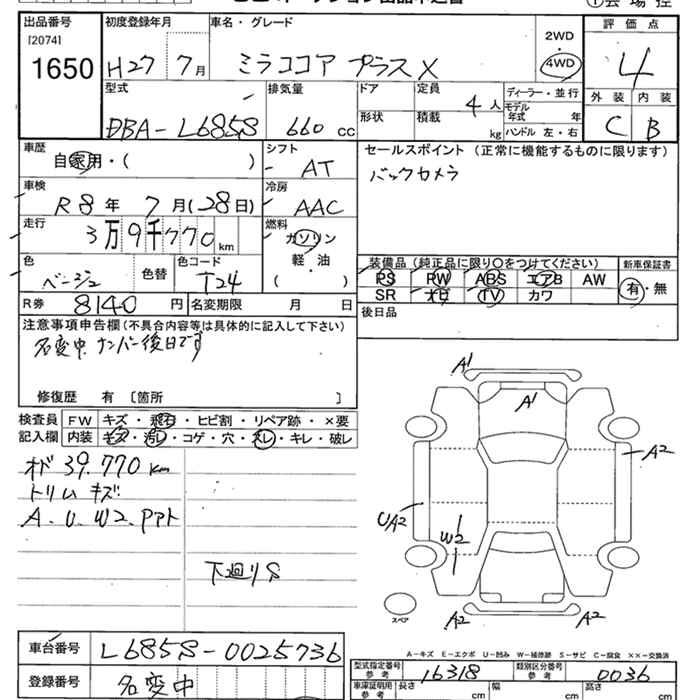 出品番号 初度登録年月 車名・グレード 評価点
[2074] 2WD
1650 H27 7月 ミラココア プラスX 4WD 4
型式 排気量 ドア 定員 4人 ディーラー・並行 外装 内装
DBA-L685S 660cc 形状 積載 kg モデル年式 年 C B
ハンドル 左・右
車歴 自家用・( ) シフト AT セールスポイント (正常に機能するものに限ります)
車検 R8年 7月(28日) 冷房 AAC バックカメラ
走行 3万9千770km 燃料 ガソリン
軽・油
( )
色 ベージュ 色替 色コード T24 装備品 (純正品に限り○をつけてください) 新車保証書
PS PW ABS エアB AW 有・無
R券 8140円 名変期限 月 日 SR ナビ TV カワ
注意事項申告欄 (不具合内容等は具体的に記入して下さい) 後日品
名変中 ナンバー後日です
修復歴 有 [箇所 ]
検査員 FW キズ・飛石・ヒビ割・リペア跡・×要
記入欄 内装 キズ・汚レ・コゲ・穴・スレ・キレ・破レ
オド 39.770km
トリム キズ
A.U.W2.Pアト
下廻りS
A1
A1
A2
UA2
W2
A2 A2
スペア
A-キズ E-エクボ U-凹み W-補修跡 S-サビ C-腐食 ××-交換済
車台番号 L685S-0025736 型式指定番号 参考 16318 類別区分番号 参考 0036
登録番号 名変中 車庫証明用 参考 長さ cm 幅 cm 高さ cm